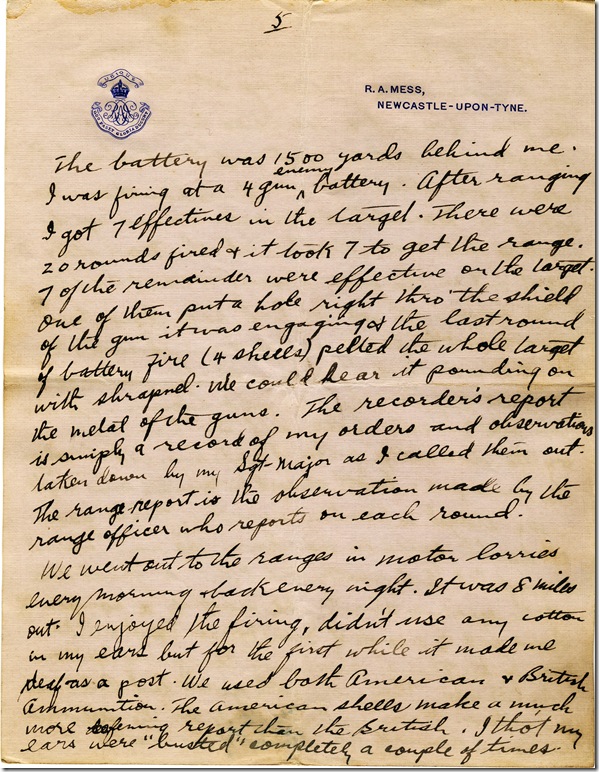 5
UBIQUE
R. A. MESS,
NEWCASTLE-UPON-TYNE.
The battery was 1500 yards behind me.
I was firing at a 4 gun enemy battery. After ranging
I got 7 effectives in the target. There were
20 rounds fired & it took 7 to get the range.
7 of the remainder were effective on the target.
One of them put a hole right thro' the shield
of the gun it was engaging & the last round
of battery fire (4 shells) pelted the whole target
with shrapnel. We could hear it pounding on
the metal of the guns. The recorder's report
is simply a record of my orders and observations
taken down by my Sgt-Major as I called them out.
The range report is the observation made by the
range officer who reports on each round.
We went out to the ranges in motor lorries
every morning & back every night. It was 8 miles
out. I enjoyed the firing, didn't use any cotton
in my ears but for the first while it made me
deaf as a post. We used both American & British
Ammunition. The American shells make a much
more deafening report than the British. I thot my
ears were "busted" completely a couple of times.